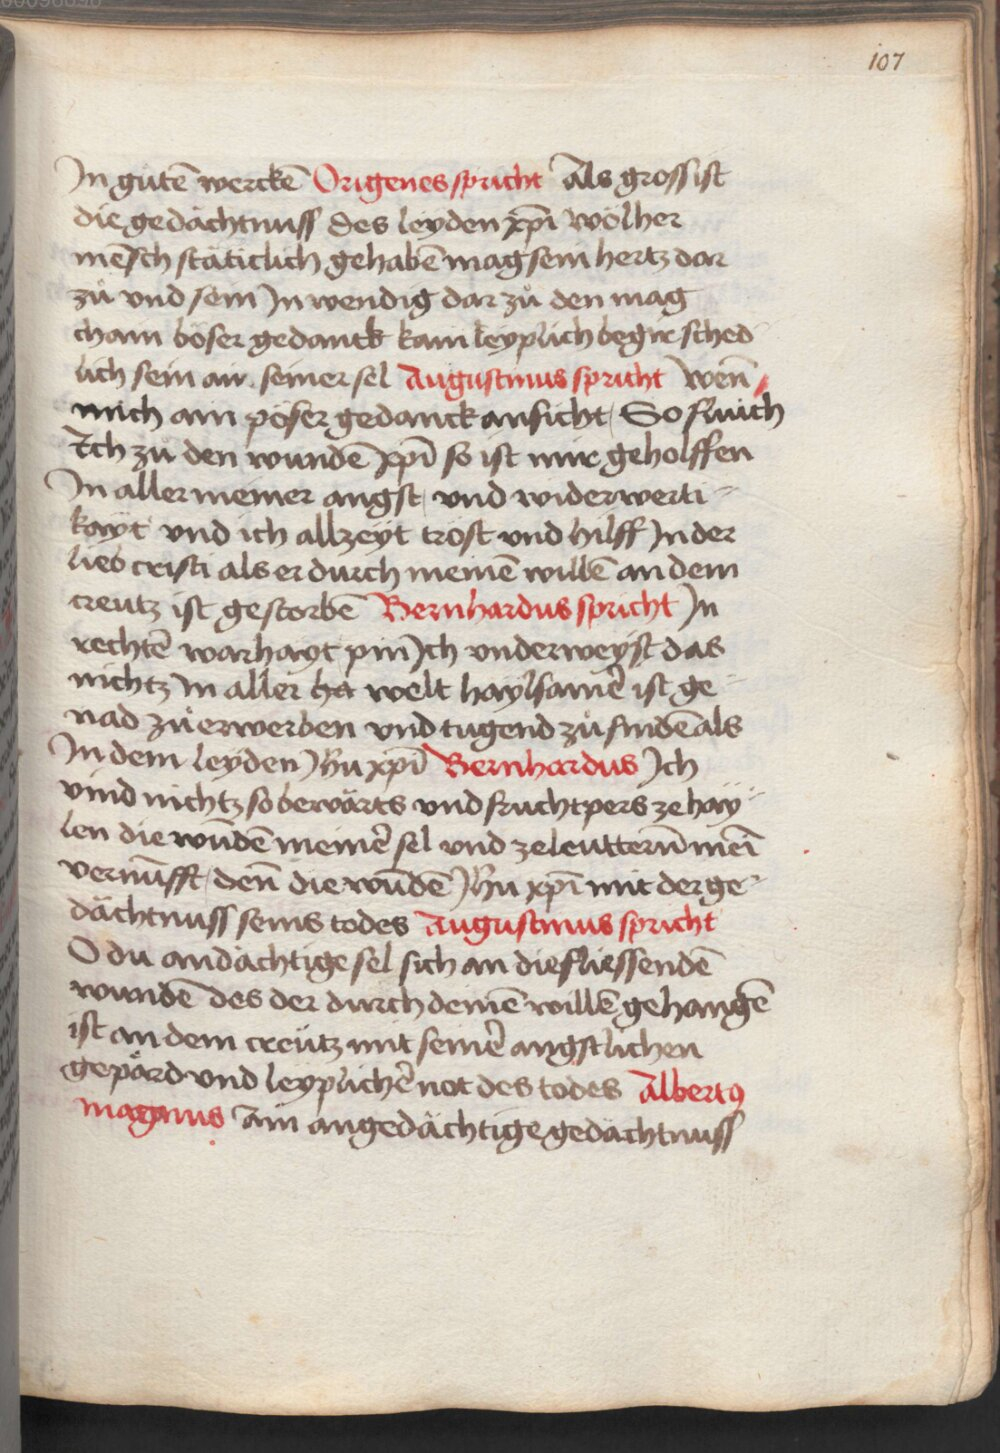 00096698
107
In gutē werckē Origenes spricht Als gross ist
die gedächtnuss des leyden xp̄i wölher
mēsch stäticlich gehabē mag sein hertz dar
zů vnd sein Inwendig dar zů den mag
chain böser gedanck kain leyplich begir sched
lich sein an seiner sel Augustinus spricht Wen̄
mich ain pöser gedanck anficht So fleuch
Ich zu den wundē xp̄i so ist mir geholffen
In aller meiner angst vnd widerwerti
kayt vnd ich allzeyt trost vnd hilff In der
lieb cristi als er durch meinē willē an dem
creutz ist gestorbē Bernhardus spricht In
rechtē warhayt pin Ich vnderweyst das
nichtz In aller ha welt haylsamer̄ ist ge
nad zů erwerben vnd tugend zů findē als
In dem leyden Jhu xp̄i Bernhardus Ich
vind nichtz so bewärts vnd fruchtpers ze hay
len die wūdē meiner̄ sel vnd ze leuttern̄ mein̄
vernūfft den̄ die wūdē Jhu xp̄i mit der ge
dächtnuss seins todes Augustinus spricht
O du andächtige sel sich an die fliessendē
wundē des der durch deinē willē gehangē
ist an dem creütz mit seiner̄ angstlichen
gepärd vnd leyplicher̄ not des todes Albertꝯ
magnus Ain angedächtige gedächtnuss